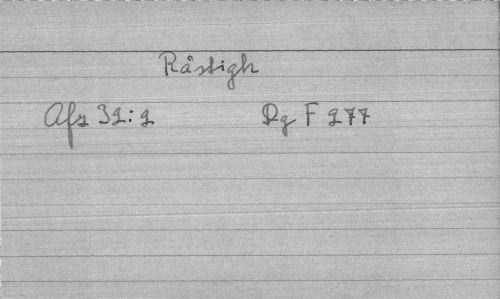 Råstigh
Afz 32:2 Dg F 277